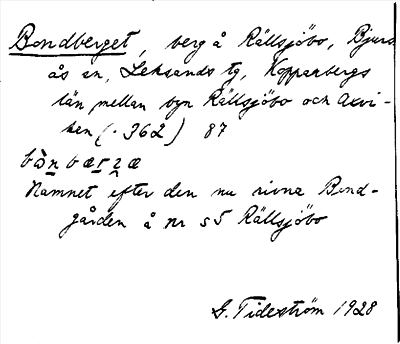 Bondberget, berg å Rällsjöbo, Bjurs
ås sn, Leksands tg, Kopparbergs
län mellan byn Rällsjöbo och Axvi-
ken (· 362) 87
Namnet efter den nu rivna Bond-
gården å nr 55 Rällsjöbo
G. Tideström 1928